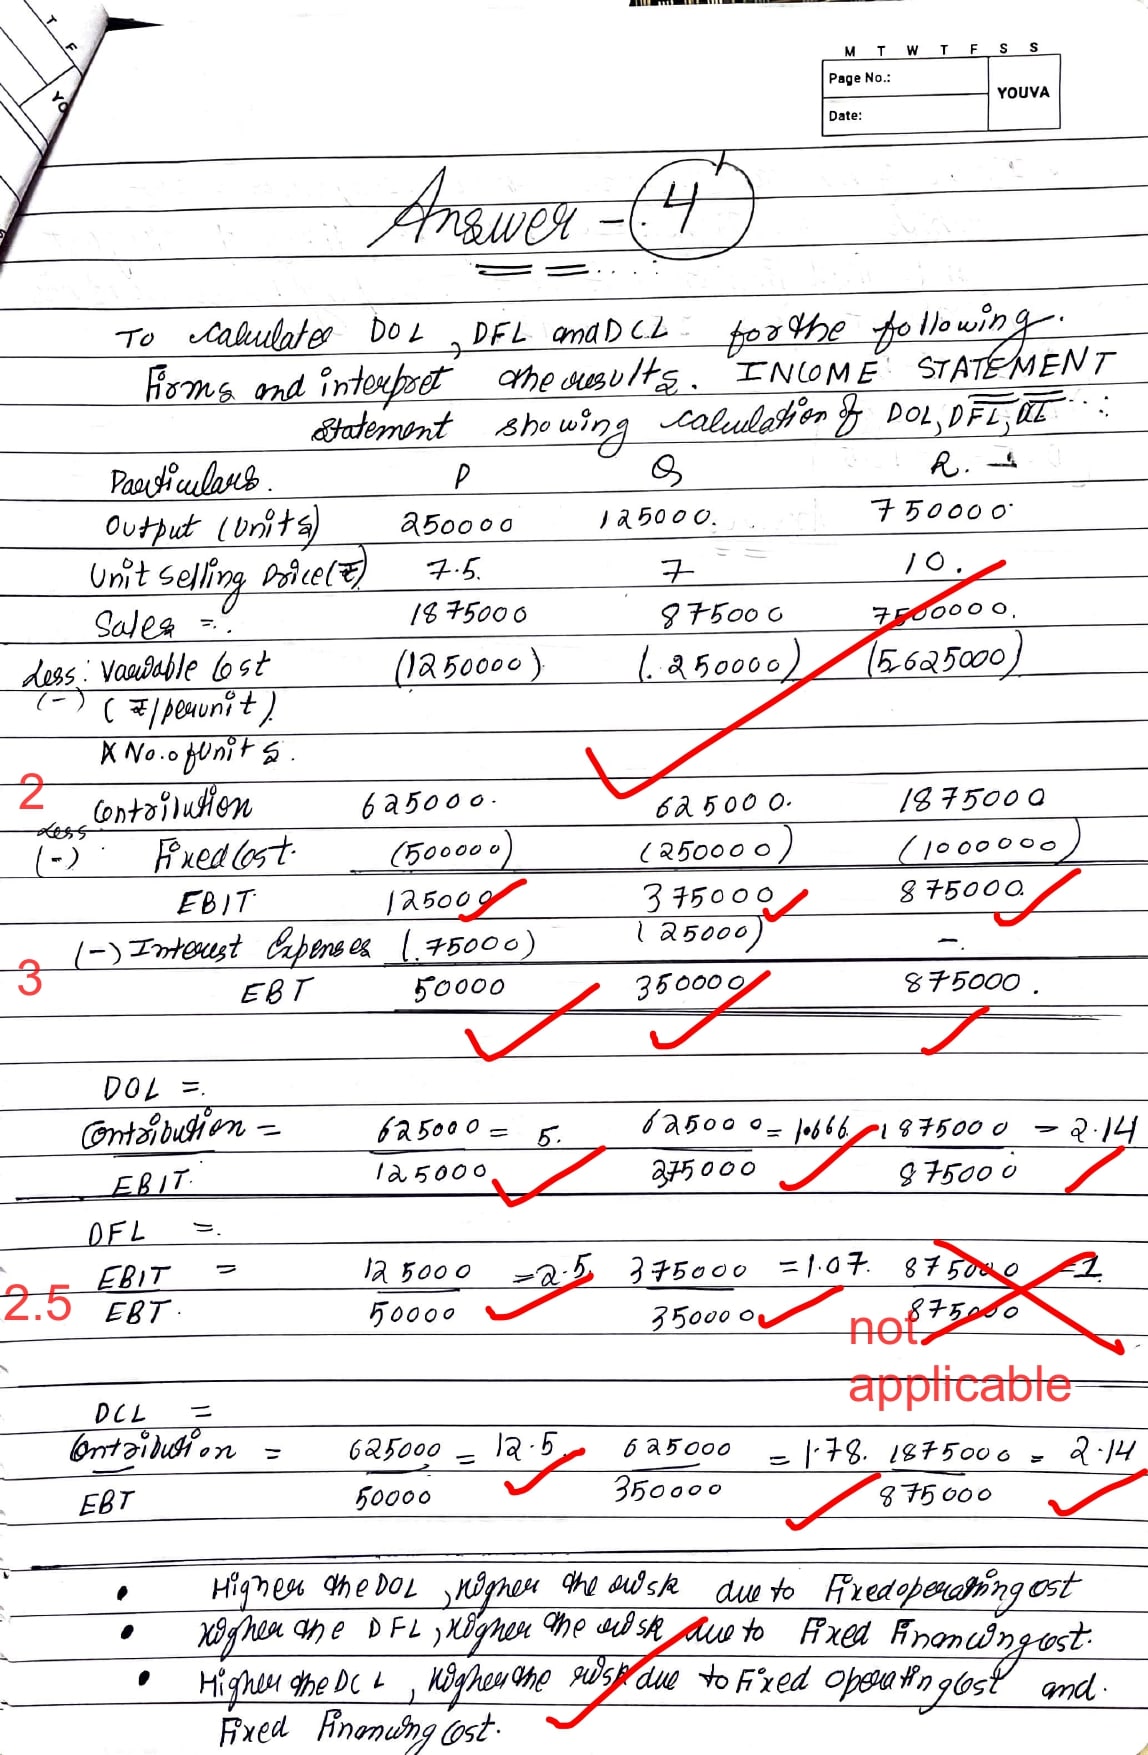 M T W T F S S
Page No.:
YOUVA
Date:
T
F
YO
Answer - 4
To calculatee DOL, DFL and DCL for the following.
Firms and interpret the results. INCOME STATEMENT
Statement showing calculation of DOL, DFL, DCL
Particulars. P Q R.
Output (Units) 250000 125000. 750000
Unit Selling Price(₹) 7.5. 7 10.
Sales = 1875000 875000 7500000.
Less: Variable Cost (1250000) (250000) (5625000)
(-) (₹/per unit).
X No. of Units.
2
Contribution 625000. 625000. 1875000
Less
(-) Fixed Cost. (500000) (250000) (1000000)
EBIT. 125000 375000 875000.
(-) Interest Expenses (75000) (25000) -.
3
EBT 50000 350000 875000.
DOL =.
Contribution = 625000 = 5. 625000 = 1.666. 1875000 = 2.14
EBIT. 125000 375000 875000
DFL =.
EBIT = 125000 = 2.5 375000 = 1.07. 875000 = 1
2.5
EBT. 50000 350000 875000
not
applicable
DCL =
Contribution = 625000 = 12.5 625000 = 1.78. 1875000 = 2.14
EBT 50000 350000 875000
• Higher the DOL, higher the risk due to Fixed operating cost
• Higher the DFL, higher the risk due to Fixed Financing cost.
• Higher the DCL, higher the risk due to Fixed Operating Cost and.
Fixed Financing Cost.